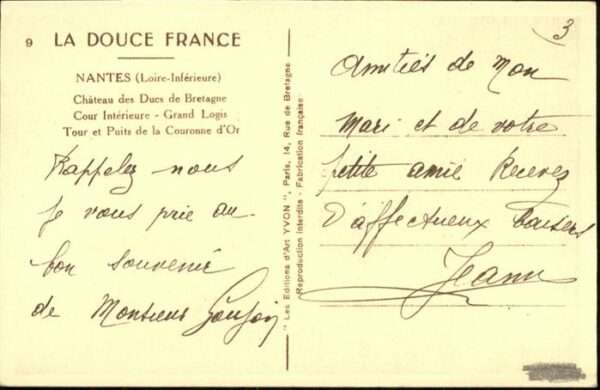 9 LA DOUCE FRANCE
NANTES (Loire-Inférieure)
Château des Ducs de Bretagne
Cour Intérieure - Grand Logis
Tour et Puits de la Couronne d'Or
Rappelez nous
Je vous prie au
bon souvenir
de Monsieur
" Les Editions d'Art YVON ", Paris, 14, Rue de Bretagne
Reproduction Interdite - Fabrication française
3
Amitiés de Mon
Mari et de votre
petite amie Recevez
D'affectueux baisers
Jeanne